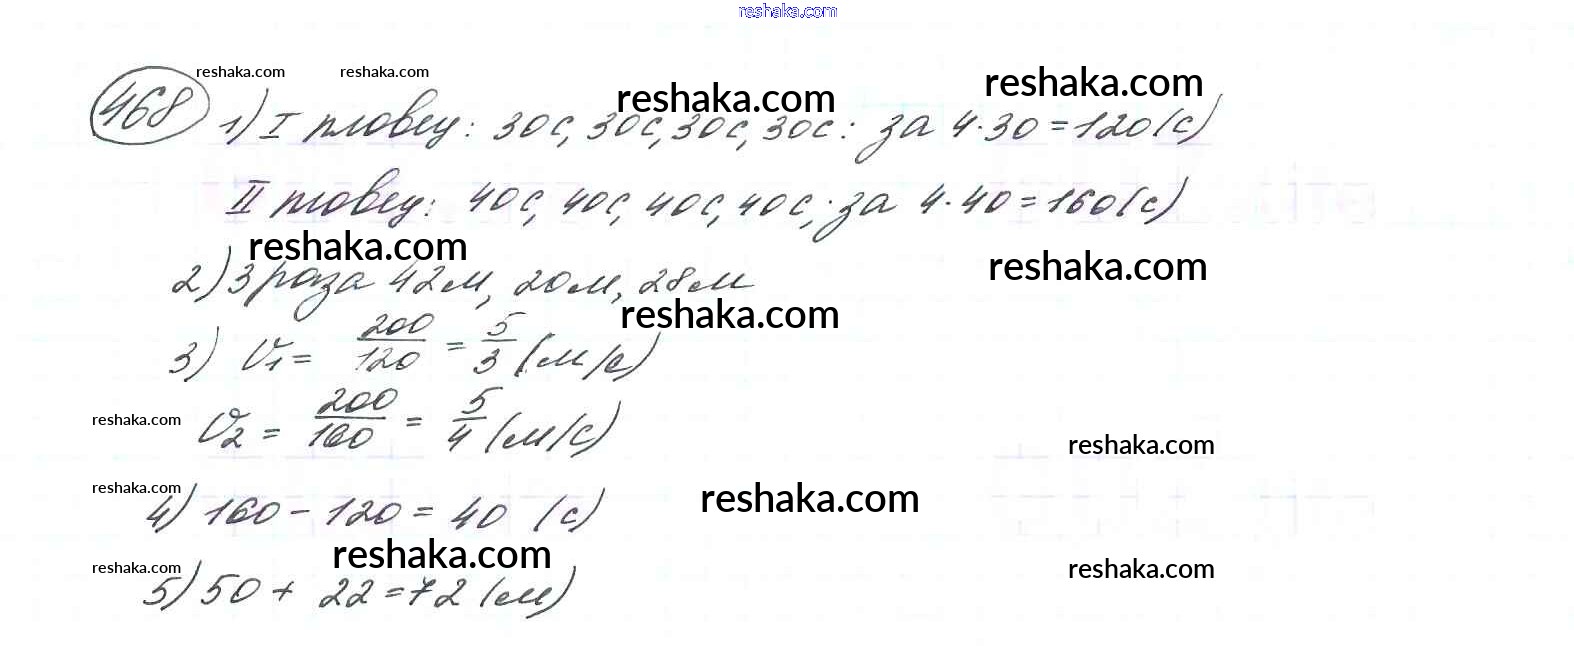 reshaka.com
reshaka.com reshaka.com reshaka.com reshaka.com
468 1) I пловец: 30с, 30с, 30с, 30с: за 4·30=120(с)
II пловец: 40с, 40с, 40с, 40с; за 4·40=160(с)
reshaka.com reshaka.com
2) 3 раза 42м, 20м, 28м
reshaka.com
3) V₁ = 200/120 = 5/3 (м/с)
reshaka.com
V₂ = 200/160 = 5/4 (м/с)
reshaka.com
reshaka.com reshaka.com
4) 160 - 120 = 40 (с)
reshaka.com reshaka.com reshaka.com
5) 50 + 22 = 72 (м)